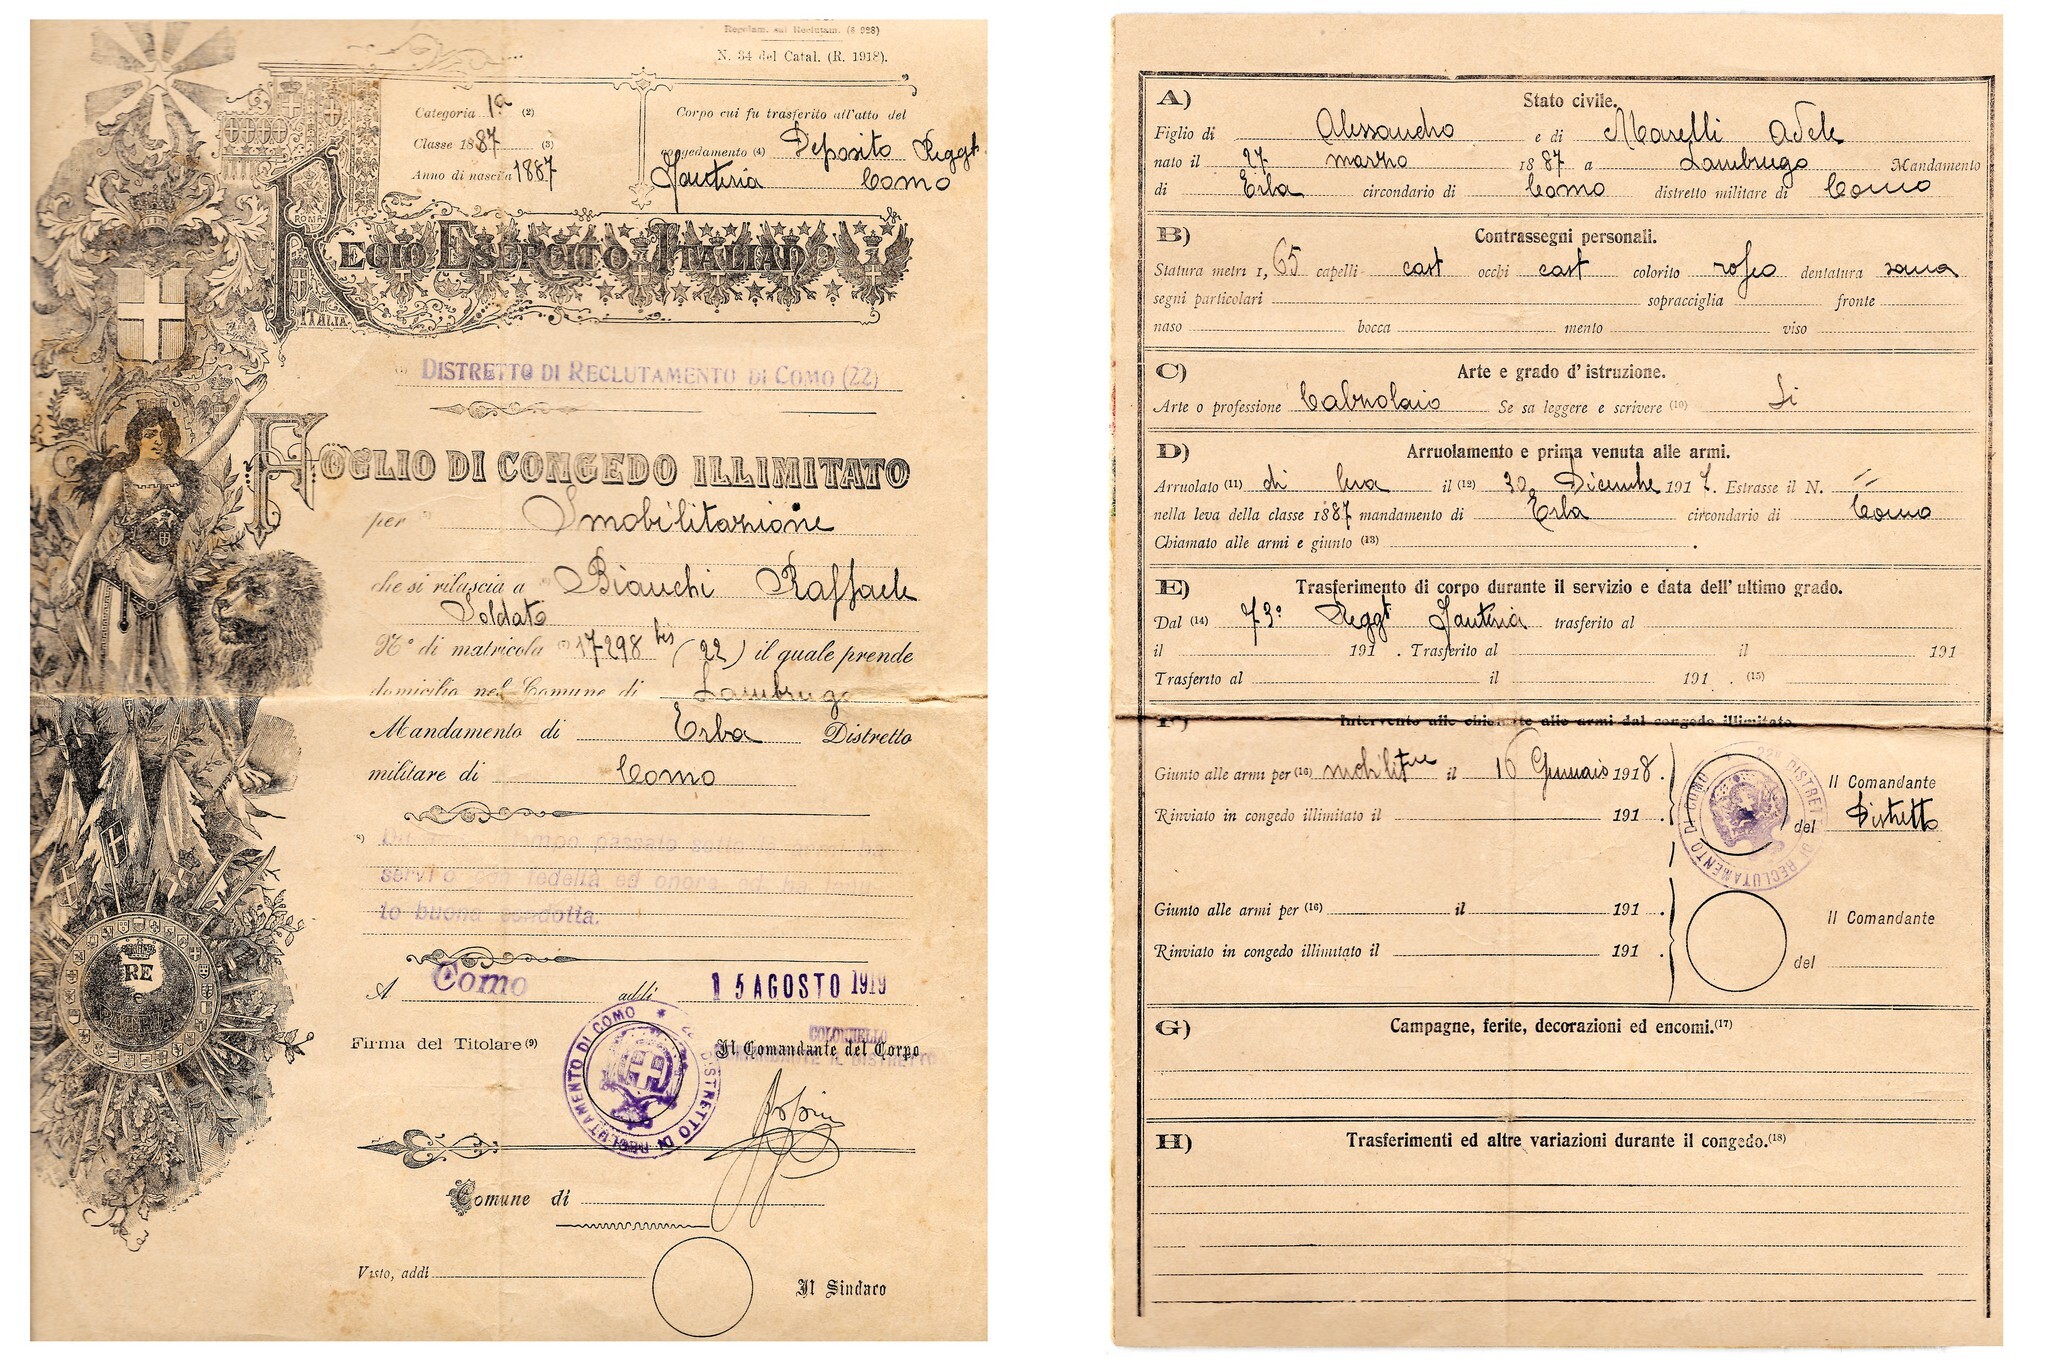 Regolam. sul Reclutam. (§ 928)
N. 34 del Catal. (R. 1918).
Categoria 1ª (2)
Classe 1887 (3)
Anno di nascita 1887
Corpo cui fu trasferito all'atto del
congedamento (4) Deposito Reggt.
Fanteria Como
ROMA
REGIO ESERCITO ITALIANO
ITALIA
DISTRETTO DI RECLUTAMENTO DI COMO (22)
FOGLIO DI CONGEDO ILLIMITATO
per Smobilitazione
che si rilascia a Bianchi Raffaele
Soldato
N° di matricola 17298 bis (22) il quale prende
domicilio nel Comune di Lambrugo
Mandamento di Erba Distretto
militare di Como
tempo passato sotto ha
servito con fedeltà ed onore ed ha tenu-
to buona condotta.
RE
e
PATRIA
A Como addì 15 AGOSTO 1919
Firma del Titolare (9)
COLONNELLO
Il Comandante del Corpo
COMANDANTE IL DISTRETTO
DISTRETTO DI RECLUTAMENTO DI COMO
Comune di
Visto, addì
Il Sindaco
A) Stato civile.
Figlio di Alessandro e di Marelli Adele
nato il 27 marzo 1887 a Lambrugo Mandamento
di Erba circondario di Como distretto militare di Como
B) Contrassegni personali.
Statura metri 1,65 capelli cast occhi cast colorito roseo dentatura sana
segni particolari sopracciglia fronte
naso bocca mento viso
C) Arte e grado d'istruzione.
Arte o professione Calzolaio Se sa leggere e scrivere (10) Si
D) Arruolamento e prima venuta alle armi.
Arruolato (11) di leva il (12) 30 Dicembre 1917. Estrasse il N. =
nella leva della classe 1887 mandamento di Erba circondario di Como
Chiamato alle armi e giunto (13) .
E) Trasferimento di corpo durante il servizio e data dell'ultimo grado.
Dal (14) 73° Reggt Fanteria trasferito al
il 191 . Trasferito al il 191
Trasferito al il 191 . (15)
F) Intervento alle chiamate alle armi dal congedo illimitato.
Giunto alle armi per (16) mobilitne il 16 Gennaio 1918.
Rinviato in congedo illimitato il 191 .
Il Comandante
del Distretto
22° DISTRETTO DI RECLUTAMENTO DI COMO
Giunto alle armi per (16) il 191 .
Rinviato in congedo illimitato il 191 .
Il Comandante
del
G) Campagne, ferite, decorazioni ed encomi. (17)
H) Trasferimenti ed altre variazioni durante il congedo. (18)